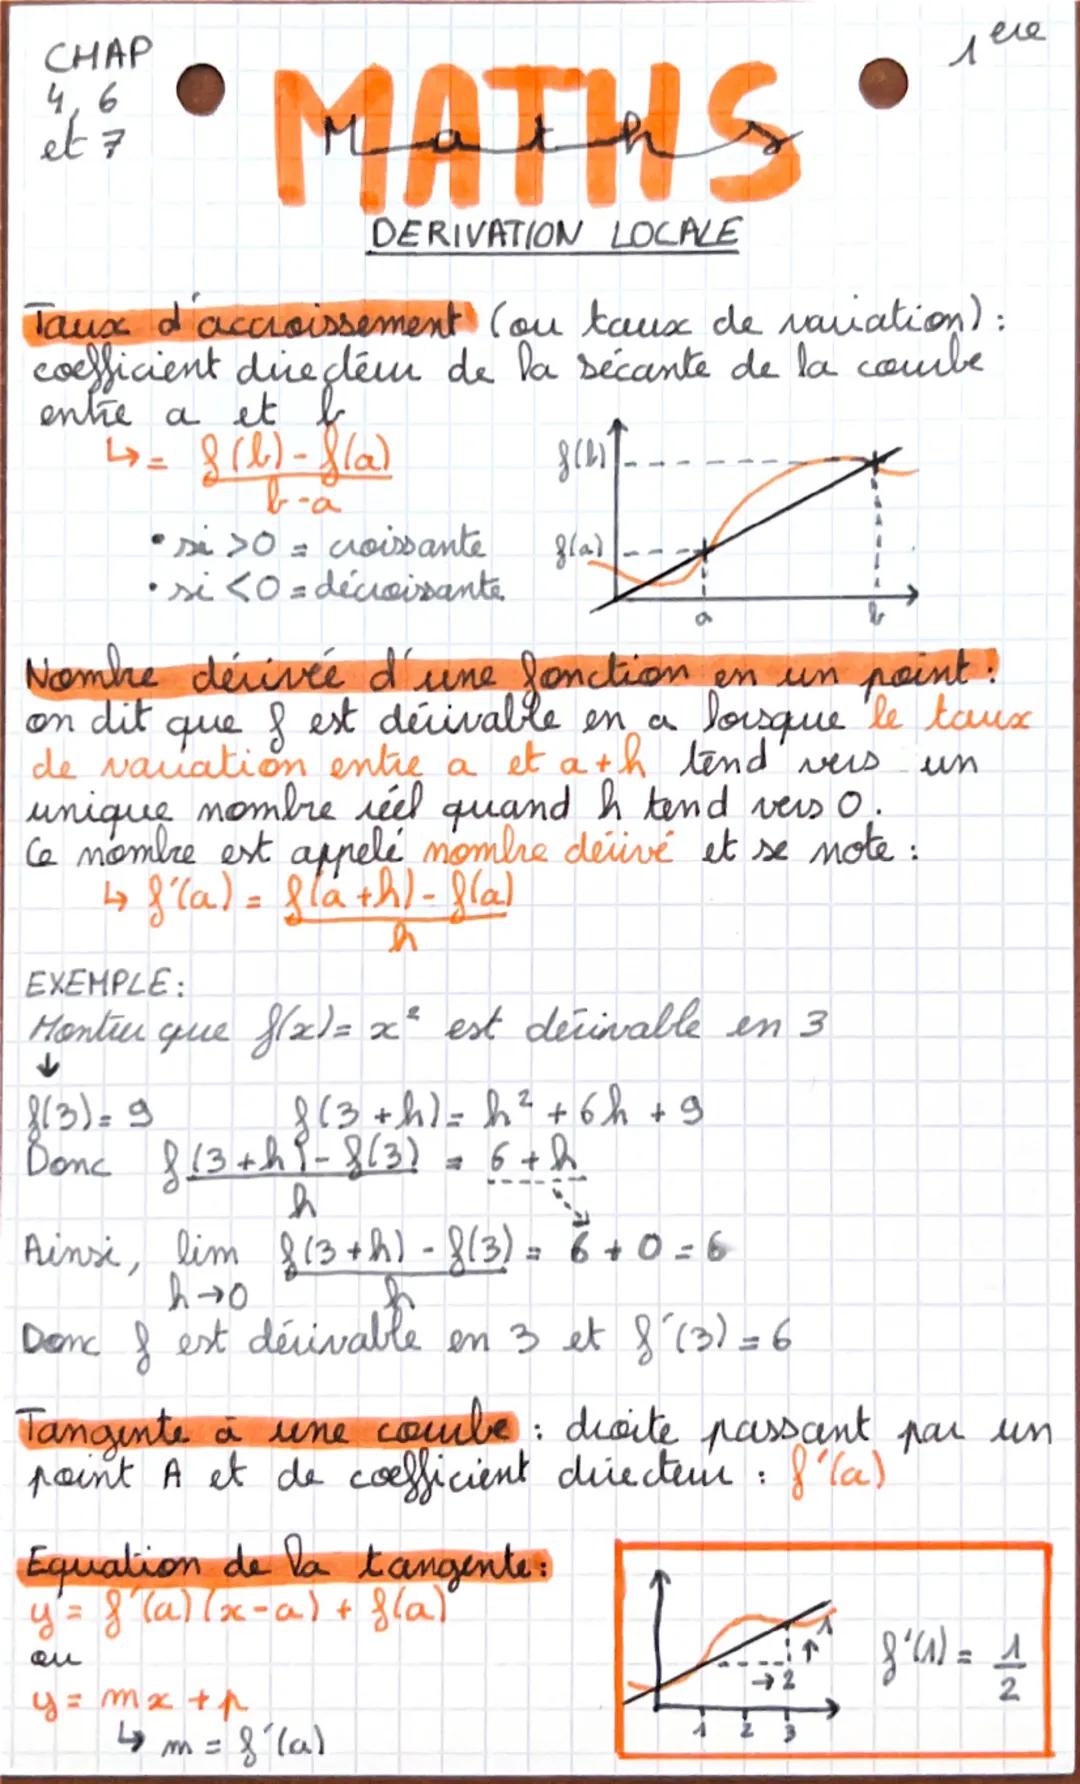 CHAP
4, 6
et 7
1ère
MATHS
Maths
DERIVATION LOCALE
Taux d'accroissement (ou taux de variation) :
coefficient directeur de la sécante de la courbe
entre a et b
↳ = f(b) - f(a)
b - a
• si > 0 = croissante
• si < 0 = décroissante
f(b)
f(a)
a
b
Nombre dérivée d'une fonction en un point :
on dit que f est dérivable en a lorsque le taux
de variation entre a et a + h tend vers un
unique nombre réel quand h tend vers 0.
Ce nombre est appelé nombre dérivé et se note :
↳ f'(a) = f(a + h) - f(a)
h
EXEMPLE :
Montrer que f(x) = x² est dérivable en 3
↓
f(3) = 9 f(3 + h) = h² + 6h + 9
Donc f(3 + h) - f(3) = 6 + h
h
Ainsi, lim f(3 + h) - f(3) = 6 + 0 = 6
h → 0 h
Donc f est dérivable en 3 et f'(3) = 6
Tangente à une courbe : droite passant par un
point A et de coefficient directeur : f'(a)
Equation de la tangente :
y = f'(a)(x - a) + f(a)
ou
y = mx + p
↳ m = f'(a)
↑ 1
→ 2
1 2 3
f'(1) = 1
2